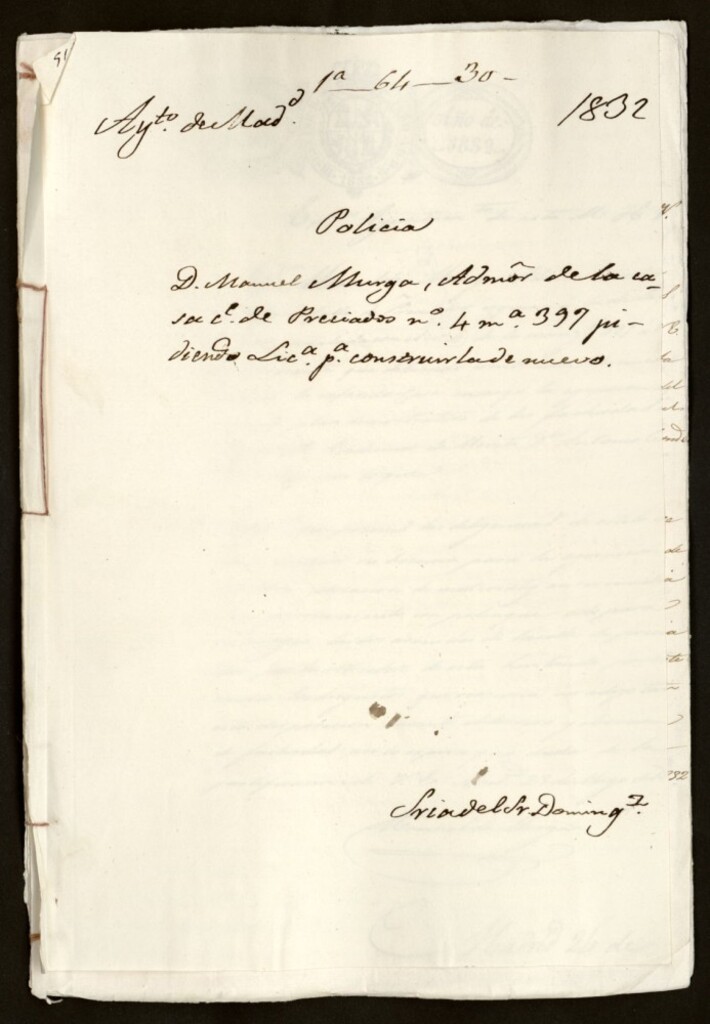 51
1ª—64—30—
Ayto. de Madd.
1832
Policia
D. Manuel Murga, Admōr de la ca-
sa cᵉ. de Preciados nº. 4 mª. 397 pi-
diendo Licª. pª. construirla de nuevo.
Sria del Sr. Domingz.